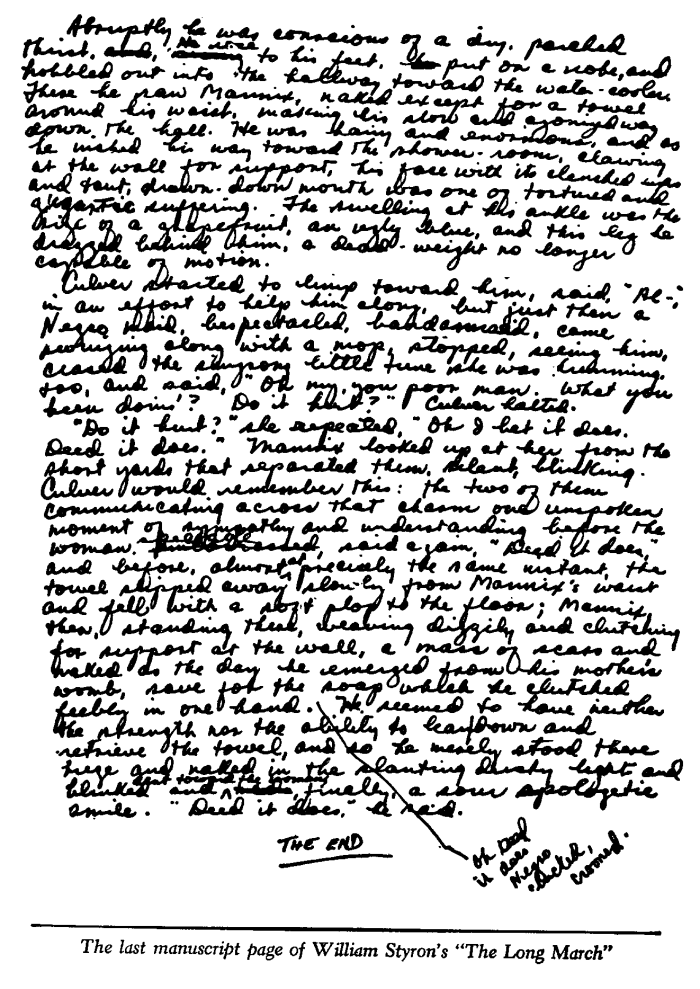 Abruptly he was conscious of a dry, parched
thirst. and, He rose to his feet, put on a robe, and
hobbled out into the hallway toward the water-cooler.
There he saw Mannix, naked except for a towel
around his waist, making his slow and agonized way
down the hall. He was hairy and enormous, and as
he inched his way toward the shower-room, clawing
at the wall for support, his face with its clenched eyes
and taut, drawn-down mouth was one of tortured and
gigantic suffering. The swelling at his ankle was the
size of a grapefruit, an ugly blue, and this leg he
dragged behind him, a dead-weight no longer
capable of motion.
Culver started to limp toward him, said, "Al-,"
in an effort to help him along, but just then a
Negro maid, bespectacled, came
along with a mop, stopped, seeing him,
ceased the singsong little tune she was humming,
too, and said, "Oh my, you poor man. What you
been doin'? Do it hurt?" Culver halted.
"Do it hurt?" she repeated, "Oh I bet it does.
Deed it does." Mannix looked up at her from the
short yards that separated them, silent, blinking.
Culver would remember this: the two of them
communicating across that chasm one unspoken
moment of sympathy and understanding before the
woman, said again, "Deed it does,"
and before, almost at precisely the same instant, the
towel slipped away slowly from Mannix's waist
and fell with a soft plop to the floor; Mannix,
then, standing there, weaving dizzily and clutching
for support at the wall, a mass of scars and
naked as the day he emerged from his mother's
womb, save for the soap which he clutched
feebly in one hand. He seemed to have neither
the strength nor the ability to lean down and
retrieve the towel, and so he merely stood there
huge and naked in the slanting dusty light and
blinked and sent toward the woman, finally, a sour apologetic
smile. "Deed it does," he said.
THE END
Oh Deed
it does
Negro
clucked,
crooned.
The last manuscript page of William Styron's "The Long March"